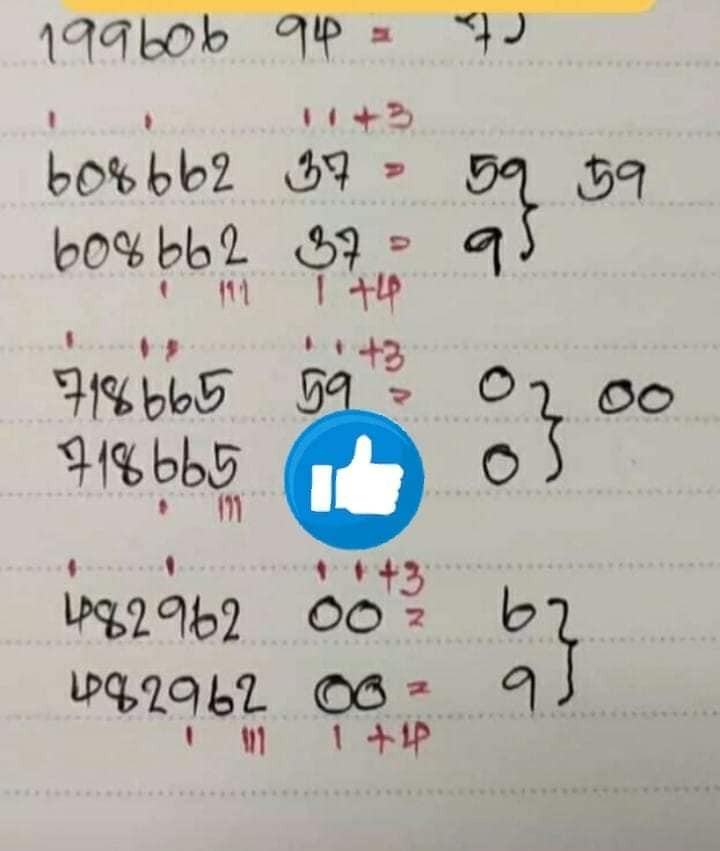 199606 94 =
+3
608662 37 = 59 59
608662 37 = 9
+4
+3
718665 59 = 0 00
718665 0
+3
482962 00 = 6
482962 00 = 9
+4